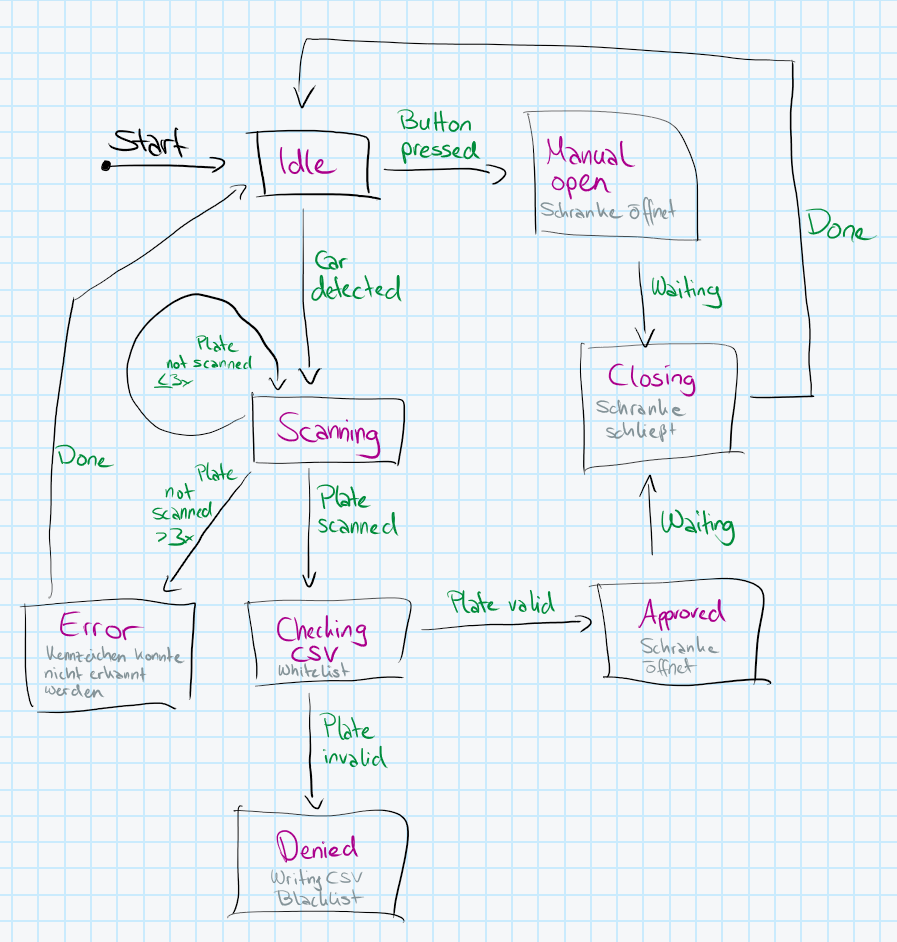 Start
Idle
Button
pressed
Manual
open
Schranke öffnet
Done
Car
detected
Waiting
Plate
not scanned
≤3x
Closing
Schranke
schließt
Scanning
Done
Plate
not
scanned
>3x
Plate
scanned
Waiting
Error
Kennzeichen konnte
nicht erkannt
werden
Checking
CSV
Whitelist
Plate valid
Approved
Schranke
öffnet
Plate
invalid
Denied
Writing CSV
Blacklist